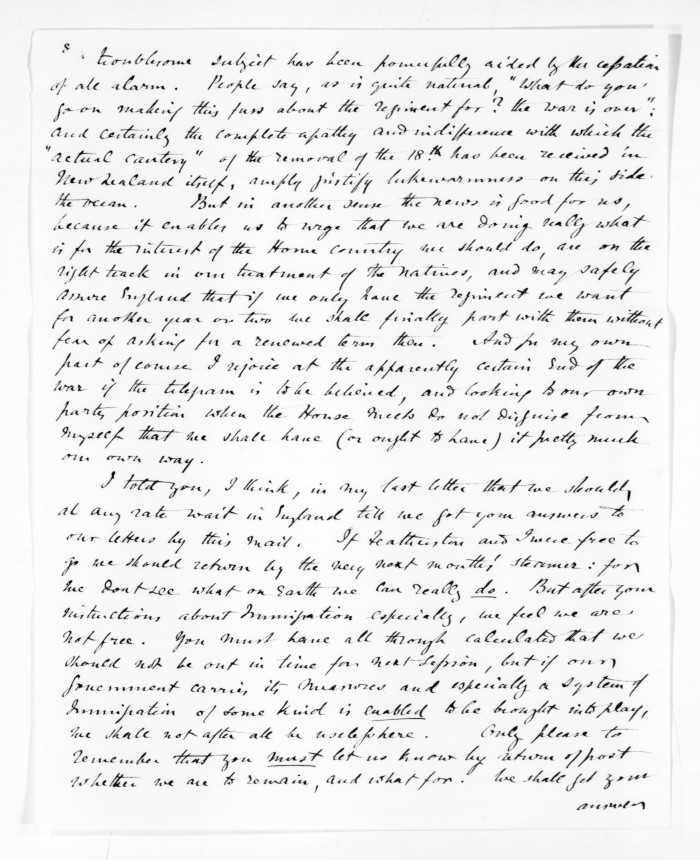 troublesome subject has been powerfully aided by the cessation
of all alarm. People say, as is quite natural, "What do you
go on making this fuss about the regiment for? the war is over":
and certainly the complete apathy and indifference with which the
"actual cautery" of the removal of the 18th has been received in
New Zealand itself, amply justify lukewarmness on this side
the ocean. But in another sense the news is good for us,
because it enables us to urge that we are doing really what
is for the interest of the Home country we should do, are on the
right track in our treatment of the natives, and may safely
assure England that if we only have the regiment we want
for another year or two we shall finally part with them without
fear of asking for a renewed term then. And for my own
part of course I rejoice at the apparently certain End of the
war if the telegram is to be believed, and looking to our own
party position when the House meets do not disguise from
myself that we shall have (or ought to have) it pretty much
our own way.
I told you, I think, in my last letter that we should
at any rate wait in England till we got your answers to
our letters by this mail. If Featherston and I were free to
go we should return by the very next months' steamer: for
we dont see what on Earth we can really do. But after your
instructions about Immigration especially, we feel we are
not free. You must have all through calculated that we
should not be out in time for next Session, but if our
Government carries its measures and especially a system of
Immigration of some kind is enabled to be brought into play,
we shall not after all be useless here. Only please to
remember that you must let us know by return of post
whether we are to remain, and what for. We shall get your
answer